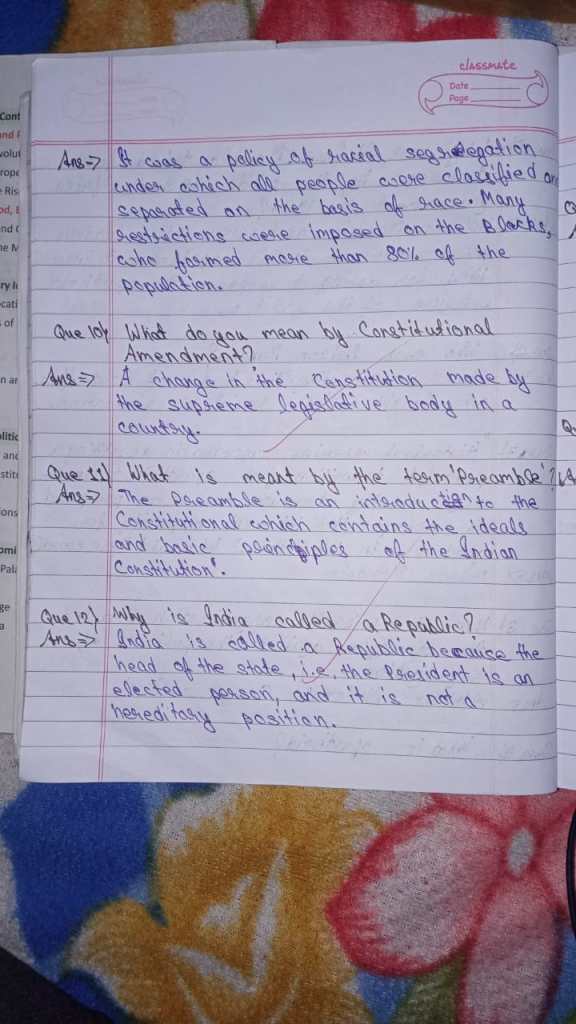 classmate
Date
Page
Ans⇒ It was a policy of racial segregation
under which all people were classified or
separated on the basis of race. Many
restrictions were imposed on the Blacks,
who formed more than 80% of the
population.
Que 10) What do you mean by Constitutional
Amendment?
Ans⇒ A change in the Constitution made by
the supreme legislative body in a
country.
Que 11) What is meant by the term 'Preamble'?
Ans⇒ The Preamble is an introduction to the
Constitutional which contains the ideals
and basic principles of the Indian
Constitution'.
Que 12) Why is India called a Republic?
Ans⇒ India is called a Republic because the
head of the state, i.e. the President is an
elected person, and it is not a
hereditary position.